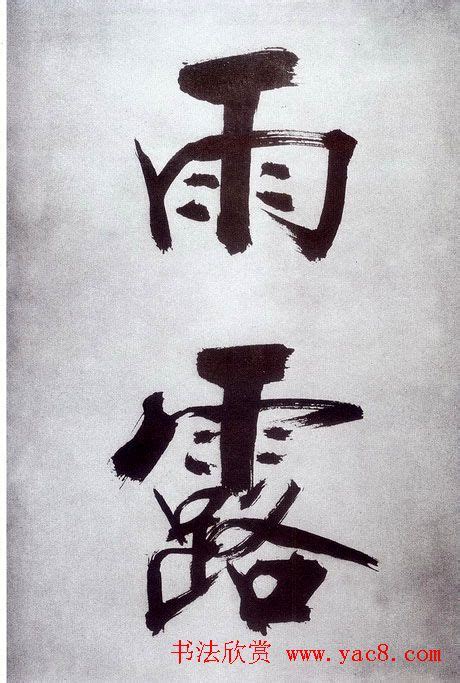 雨
露
书法欣赏 www.yac8.com